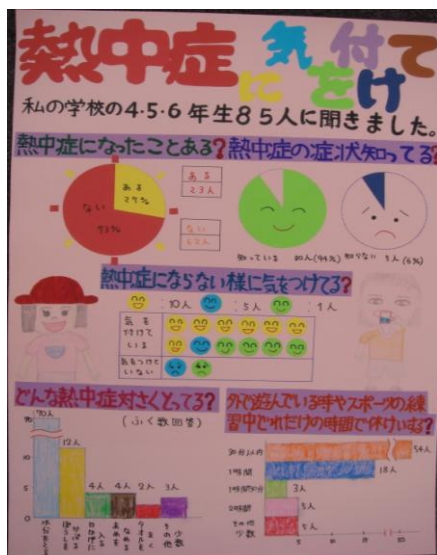 熱中症に気を付けて
私の学校の4・5・6年生85人に聞きました。
熱中症になったことある?
熱中症の症状知ってる?
ある
27%
ない
73%
ある
23人
ない
62人
知っている 80人(94%)
知らない 5人(6%)
熱中症にならない様に気をつけてる?
:10人 :5人 :1人
気を
付けて
いる
気をつけて
いない
どんな熱中症対さくとってる?
(ふく数回答)
70人
12人
4人
4人
2人
3人
10
5
0
水分をとる
ぼうしをかぶる
日かげに入る
あめをなめる
タオルをまく
その他少数
外で遊んでいる時やスポーツの練
習中どれだけの時間で休けいする?
30分以内
54人
1時間
18人
1時間30分
3人
2時間
5人
その他
少数
5人
0 5 10 15